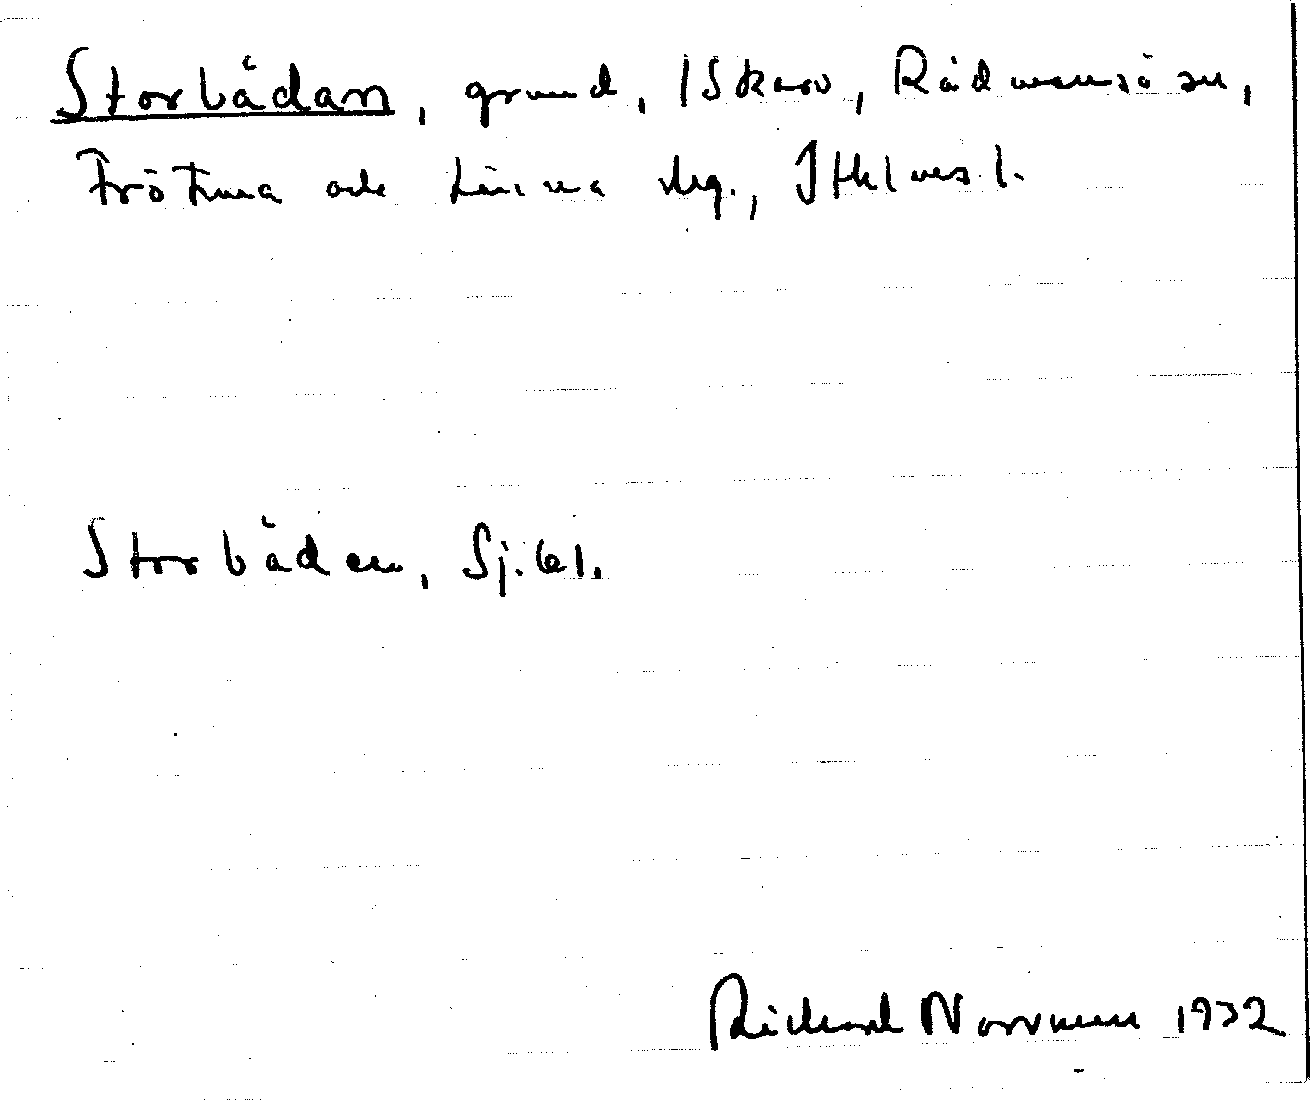 Storbådan, grund, 1 Skarv, Rådmansö sn,
Frötuna och Länna skg., Sthlms l.
Storbådan, Sj. 61.
Richard Norrman 1932